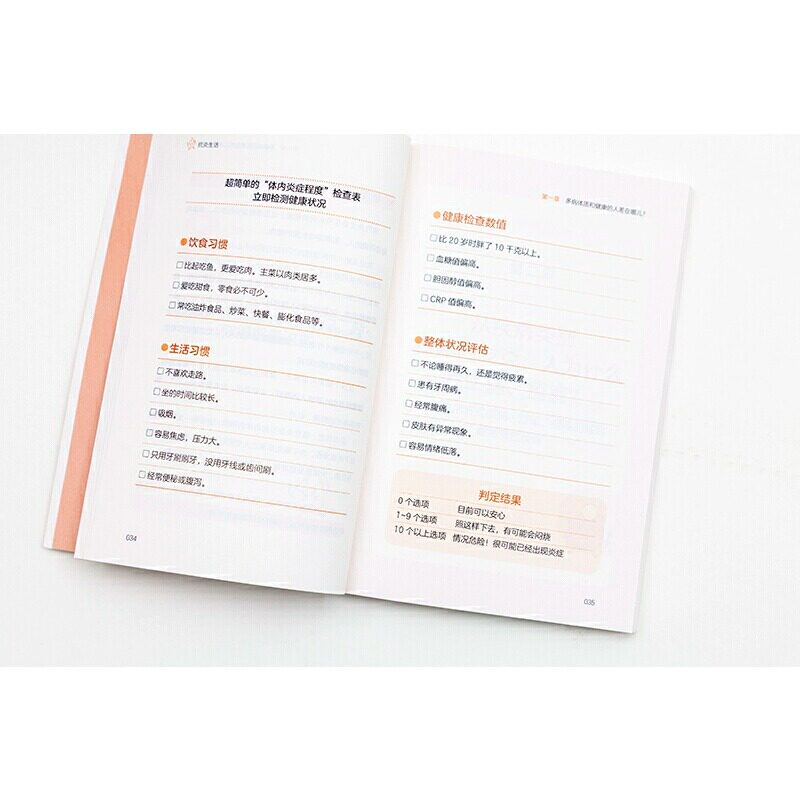 抗炎生活
超简单的“体内炎症程度”检查表
立即检测健康状况
饮食习惯
比起吃鱼，更爱吃肉。主菜以肉类居多。
爱吃甜食，零食必不可少。
常吃油炸食品、炒菜、快餐、膨化食品等。
生活习惯
不喜欢走路。
坐的时间比较长。
吸烟。
容易焦虑，压力大。
只用牙刷刷牙，没用牙线或齿间刷。
经常便秘或腹泻。
034
第一章 多病体质和健康的人差在哪儿？
健康检查数值
比 20 岁时胖了 10 千克以上。
血糖值偏高。
胆固醇值偏高。
CRP 值偏高。
整体状况评估
不论睡得再久，还是觉得疲累。
患有牙周病。
经常腹痛。
皮肤有异常现象。
容易情绪低落。
判定结果
0 个选项 目前可以安心
1~9 个选项 照这样下去，有可能会闷烧
10 个以上选项 情况危险！很可能已经出现炎症
035